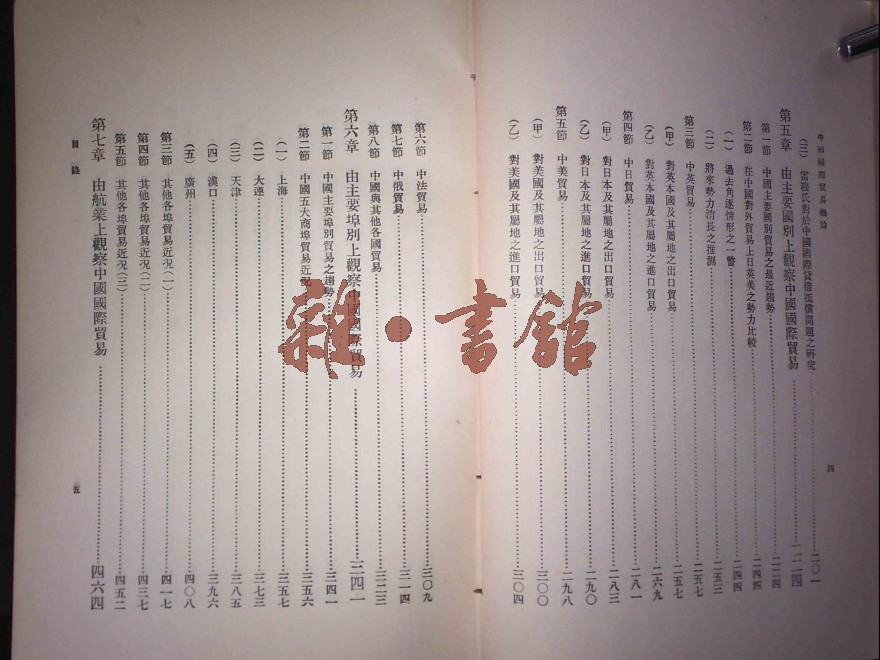 中國國際貿易概論
(三) 雷穆氏對於中國國際貸借抵償問題之研究……二〇一
第五章 由主要國別上觀察中國國際貿易……二二四
第一節 中國主要國別貿易之最近趨勢……二二四
第二節 在中國對外貿易上日英美之勢力比較……二四四
(一) 過去角逐情形之一瞥……二四四
(二) 將來勢力消長之推測……二五三
第三節 中英貿易……二五七
(甲) 對英本國及其屬地之出口貿易……二五七
(乙) 對英本國及其屬地之進口貿易……二六九
第四節 中日貿易……二八一
(甲) 對日本及其屬地之出口貿易……二八三
(乙) 對日本及其屬地之進口貿易……二九〇
第五節 中美貿易……二九八
(甲) 對美國及其屬地之出口貿易……三〇〇
(乙) 對美國及其屬地之進口貿易……三〇四
四
第六節 中法貿易……三〇九
第七節 中俄貿易……三一四
第八節 中國與其他各國貿易……三二三
第六章 由主要埠別上觀察中國國際貿易……三四一
第一節 中國主要埠別貿易之趨勢……三四一
第二節 中國五大商埠貿易近況……三五六
(一) 上海……三五七
(二) 大連……三七三
(三) 天津……三八五
(四) 漢口……三九六
(五) 廣州……四〇八
第三節 其他各埠貿易近況(一)……四一七
第四節 其他各埠貿易近況(二)……四三七
第五節 其他各埠貿易近況(三)……四五二
第七章 由航業上觀察中國國際貿易……四六四
目錄
五
雜·書館